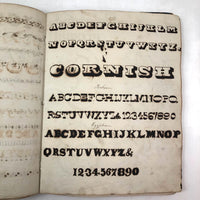 ABCDEFGHIJKLM
NOPQRSTUVWXYZ.
CORNISH
ABCDEFGHIJKLMNOPQ
RSTUVWXYZ&1234567890
ABCDEFGHIJKLMNOP
QRSTUVWXYZ&
1234567890